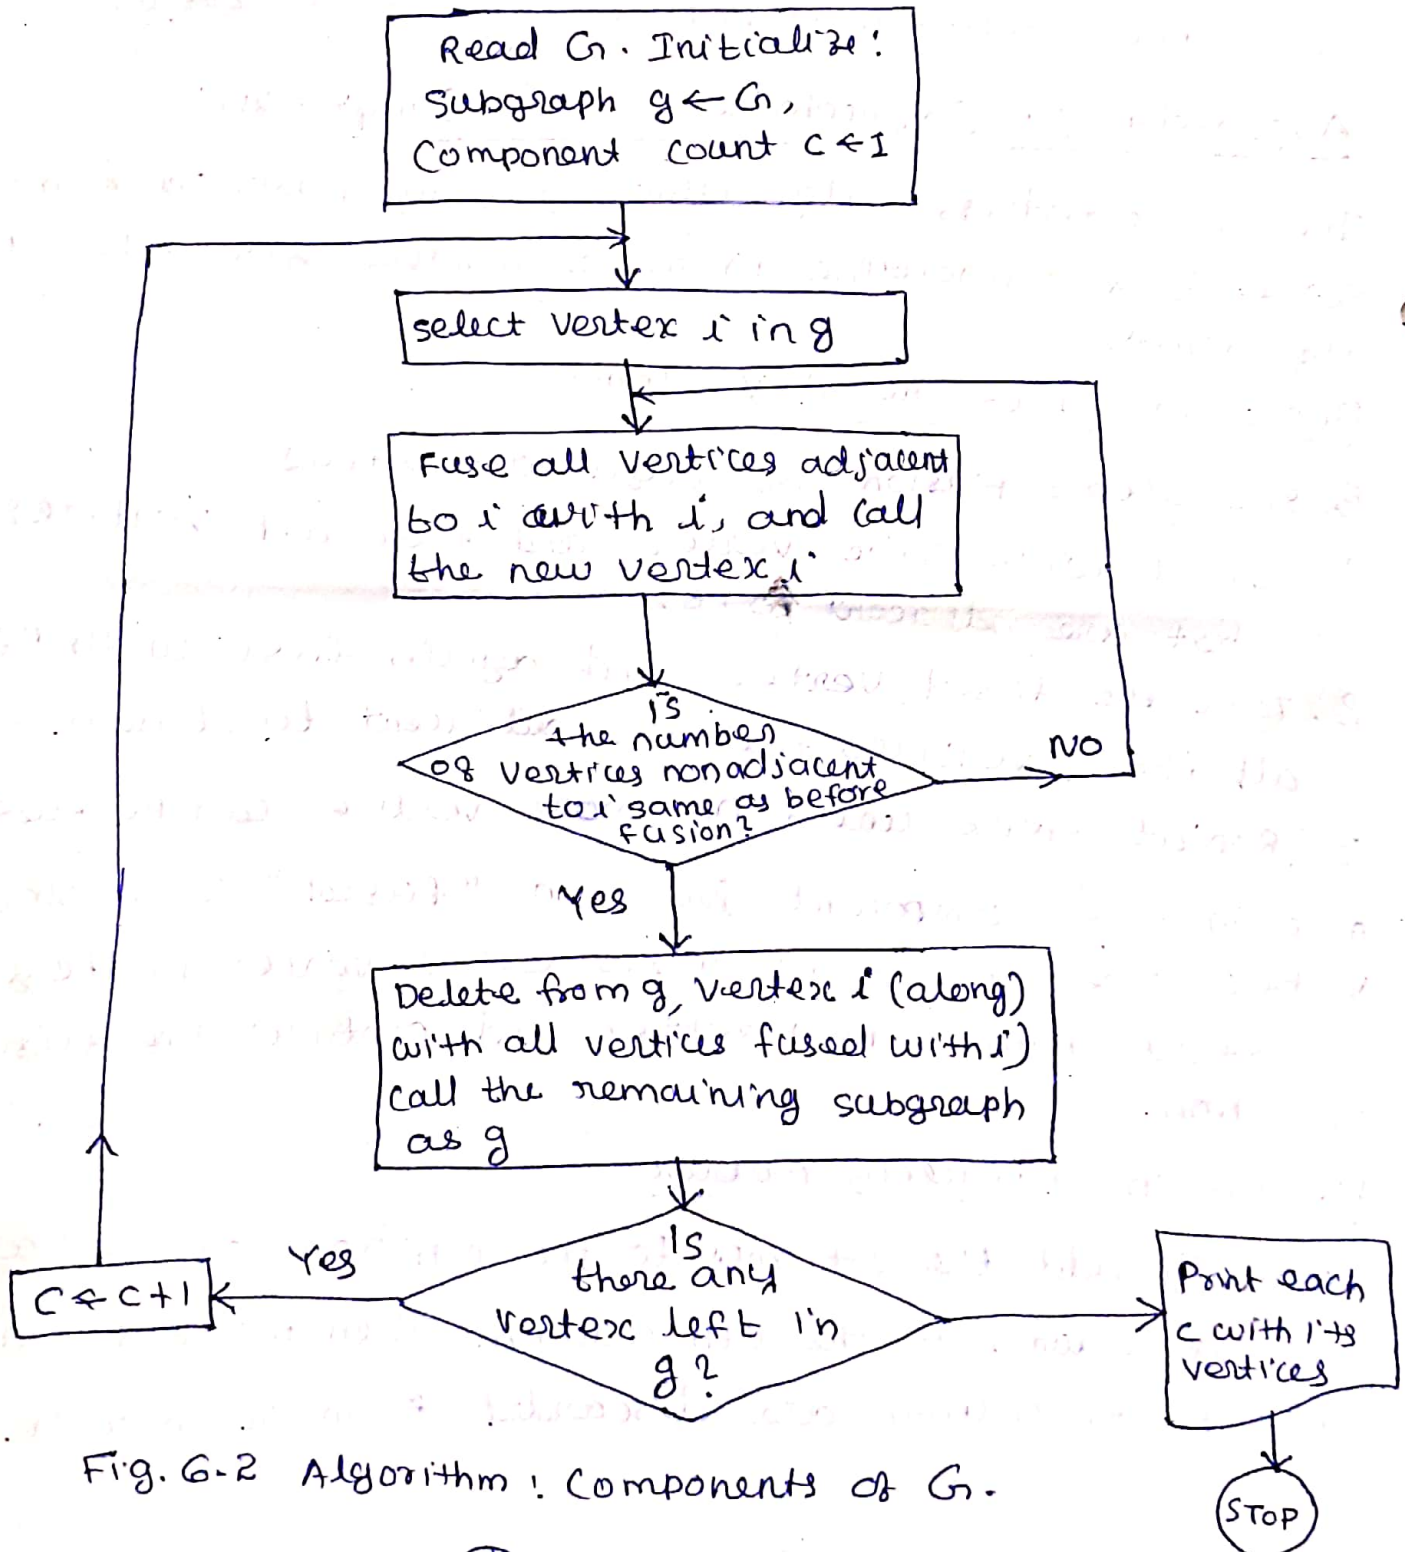 Read G. Initialize:
Subgraph g ← G,
Component count c ← 1
select vertex i in g
Fuse all vertices adjacent
to i with i, and call
the new vertex i
is
the number
of vertices nonadjacent
to i same as before
fusion?
NO
Yes
Delete from g, vertex i (along)
with all vertices fused with i)
call the remaining subgraph
as g
Is
there any
vertex left in
g?
Yes
C ← C+1
Print each
c with its
vertices
STOP
Fig. 6-2 Algorithm: Components of G.